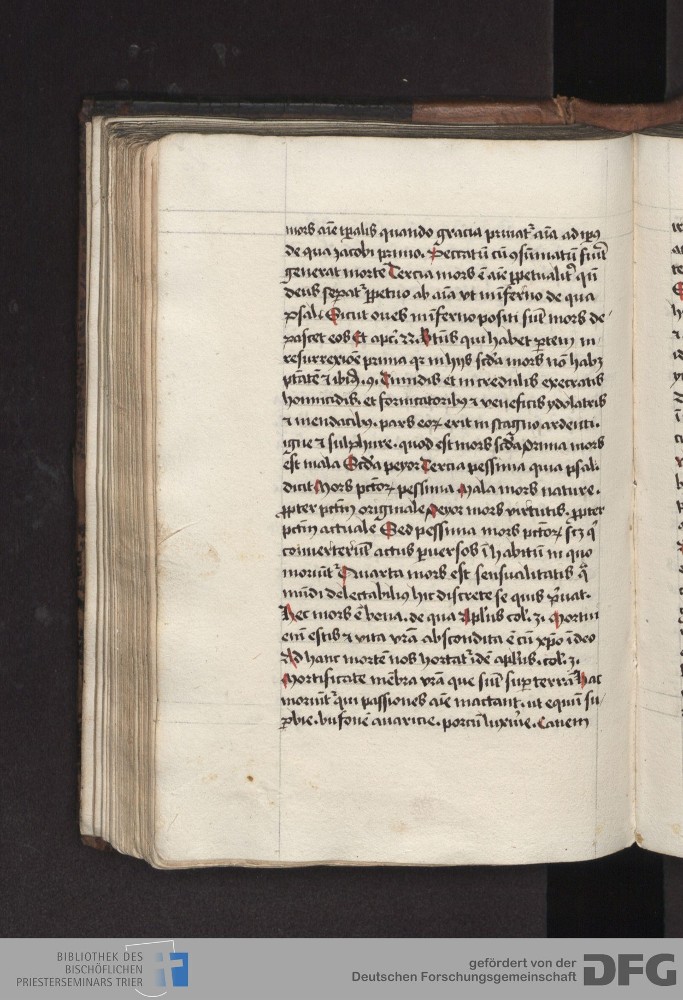 mors aīe tp̄alis quando gracia priuat᷑ aīa ad ip̄ꝰ
de qua Jacobi primo. Peccatū cū ↄsūmatū fuīt
generat mortē Tercia mors ē aīe ꝑpetualit᷑ qn̄
deus sepat᷑ ꝑpetuo ab aīa vt in īferno de qua
psal. Sicut oues in īferno positi sūt mors de-
pascet eos Et apc̄. 22. Btūs qui habet ꝑtem in
resurrexiōe prima qꝛ in hijs scd̓a mors nō habꝫ
ptātē ⁊ ibid̓. 9. Timidis et incredulis execratis
homicidis. et fornicatoribꝰ ⁊ veneficis ydolatris
⁊ mendacibꝰ. pars eoꝝ erit in stagno ardenti.
igne ⁊ sulphure. quod est mors scd̓a Prima mors
est mala Scd̓a peyor Tercia pessima qua psal.
dicit Mors pctōꝝ pessima Mala mors nature.
ꝓpter pctm̄ originale Peyor mors virtutis. ꝓpter
pctm̄ actuale Sed pessima mors pctōꝝ scꝫ qͥ
conuerterūt actus ꝑuersos ī habitū in quo
moriūt᷑ Quarta mors est sensualitatis qͣ
mūdi delectabiliꝰ hic discrete se quis pͥuat.
Hec mors ē bona. de qua Aplūs col. 3. Mortui
enī estis ⁊ vita vrā abscondita ē cū xp̄o ī deo
Ad hanc mortē nos hortat᷑ idē aplūs. col. 3.
Mortificate mēbra vrā que sūt suꝑ terrā Hac
moriūt᷑ qui passiones aīe mactant. ut equū su-
ꝑbie. bufonē auaricie. porcū luxūie. Canem
BIBLIOTHEK DES
BISCHÖFLICHEN
PRIESTERSEMINARS TRIER
gefördert von der
Deutschen Forschungsgemeinschaft
DFG